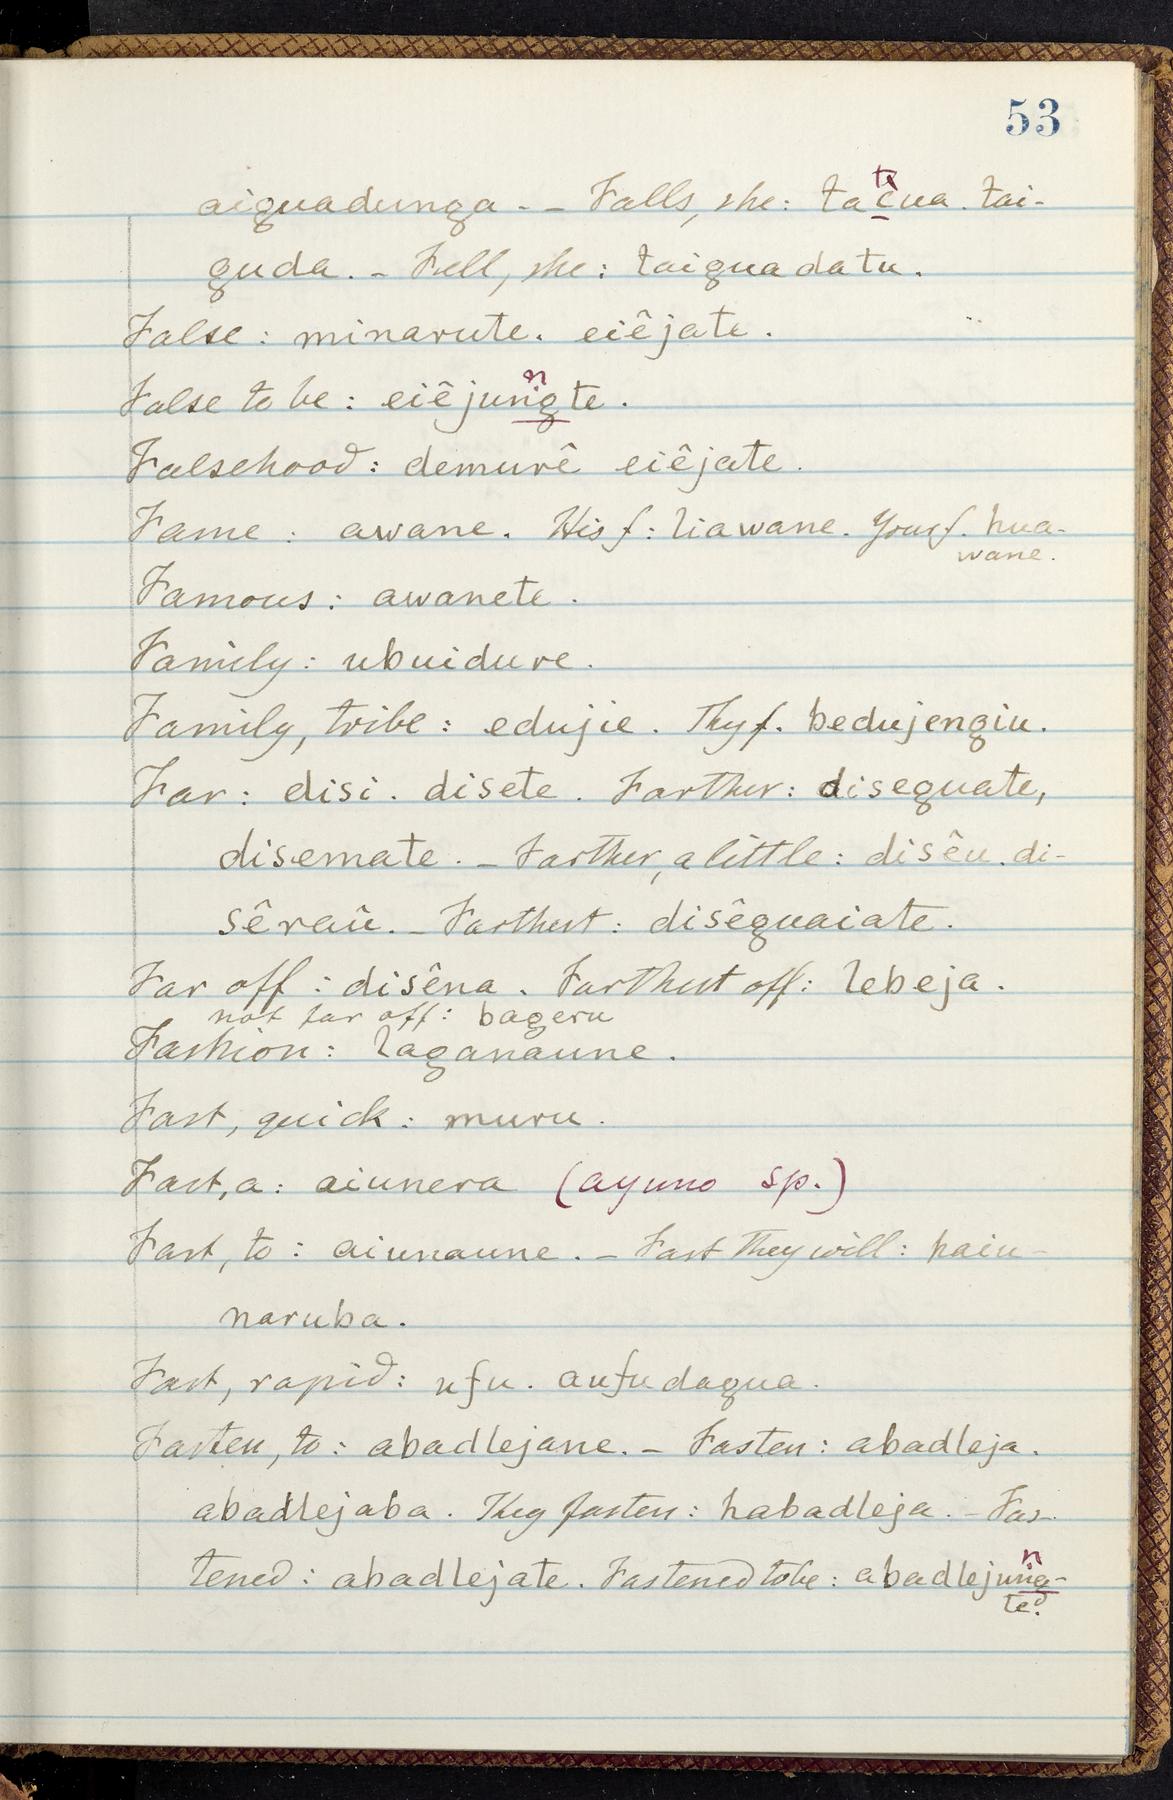 53
aiguadunga. - Falls, she: tacua. tai-
guda. - Fell, she: taiguadatu.
False: minarute. eiêjate.
n
False to be: eiêjungte.
Falsehood: demurê eiêjate.
Fame: awane. His f: liawane. Your f. hua-
wane.
Famous: awanete.
Family: ubuidure.
Family, tribe: edujie. Thy f. bedujengiu.
Far: disi. disete. Farther: diseguate,
disemate. - Farther, a little: disêu. di-
sêraü. - Farthest: disêguaiate.
Far off: disêna. Farthest off: lebeja.
not far off: bageru
Fashion: laganaune.
Fast, quick: muru.
Fast, a: aiunera (ayuno sp.)
Fast, to: aiunaune. - Fast they will: haiu-
naruba.
Fast, rapid: ufu. aufudagua.
Fasten, to: abadlejane. - Fasten: abadleja.
abadlejaba. They fasten: habadleja. - Fas-
n
tened: abadlejate. Fastened to be: abadlejung-
te.